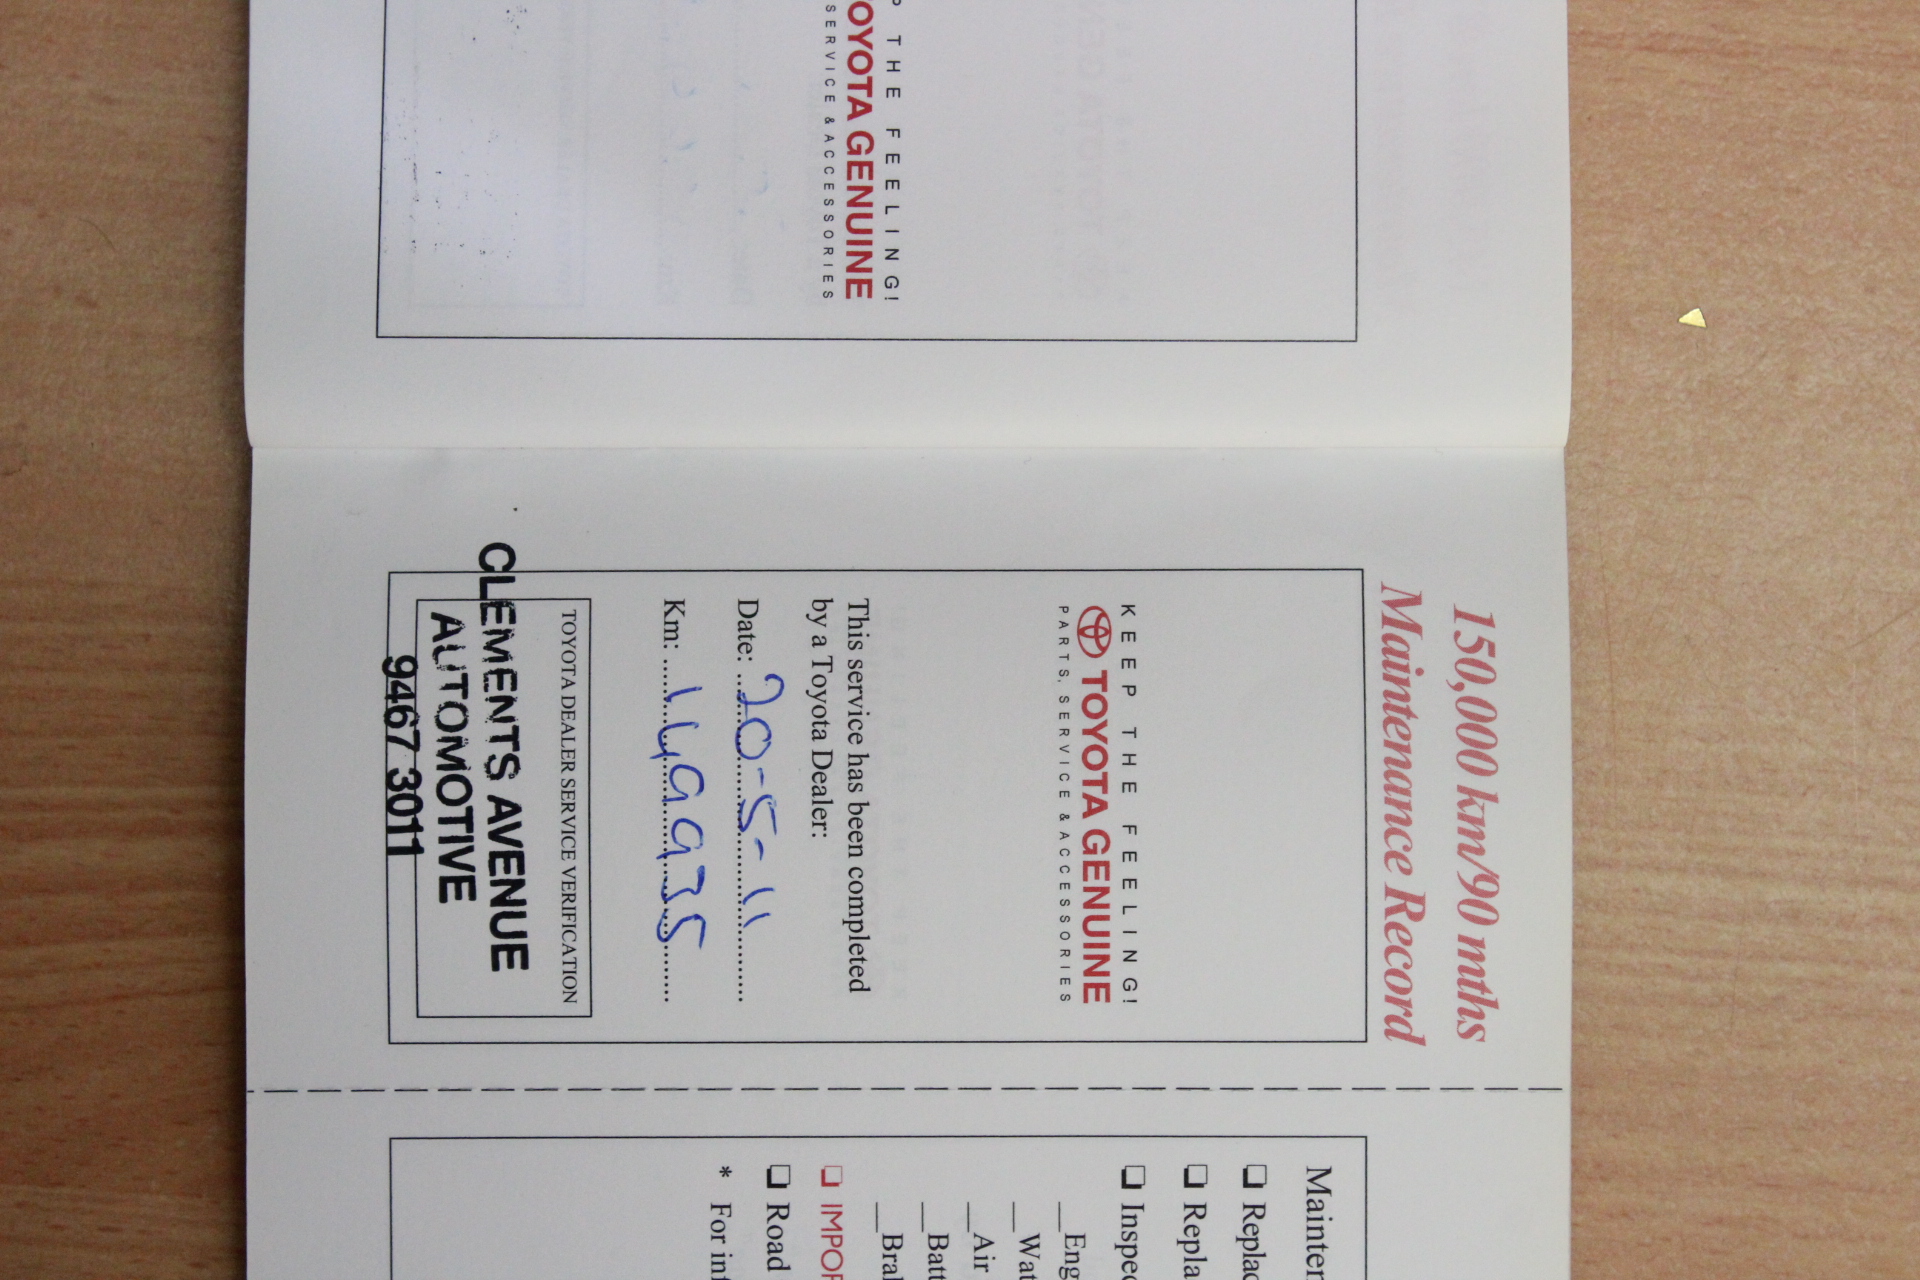 P THE FEELING!
OYOTA GENUINE
SERVICE & ACCESSORIES
150,000 km/90 mths
Maintenance Record
KEEP THE FEELING!
TOYOTA GENUINE
PARTS, SERVICE & ACCESSORIES
This service has been completed
by a Toyota Dealer:
Date: 20-5-11
Km: 149935
TOYOTA DEALER SERVICE VERIFICATION
CLEMENTS AVENUE
AUTOMOTIVE
9467 3011
Mainten
❏ Replac
❏ Repla
❏ Inspec
__Eng
__Wat
__Air
__Batt
__Bral
❏ IMPOR
❏ Road
* For inf